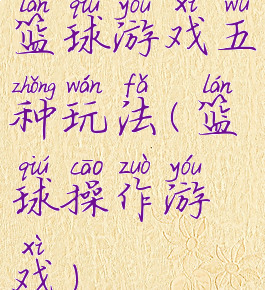 lán qiú yóu xì wǔ
篮球游戏五
zhǒng wán fǎ lán
种玩法(篮
qiú cāo zuò yóu
球操作游
xì
戏)